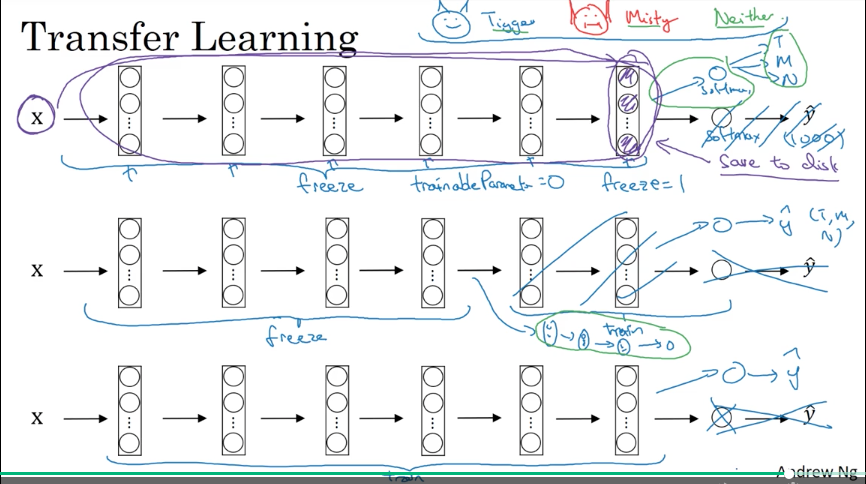 Transfer Learning
Tigger
Misty
Neither
T
M
N
x
softmax
softmax
(1000)
ŷ
save to disk
freeze
trainableParameter=0
freeze=1
x
ŷ (T, M,
N)
ŷ
freeze
train
x
ŷ
ŷ
train
Andrew Ng